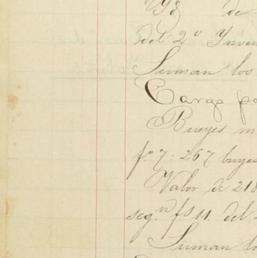 de
del 2º Inven
Suman los
Cargo po
Bueyes in
fº 7: 267 bueye
Valor de 218
segⁿ fº 11 del
Suman lo